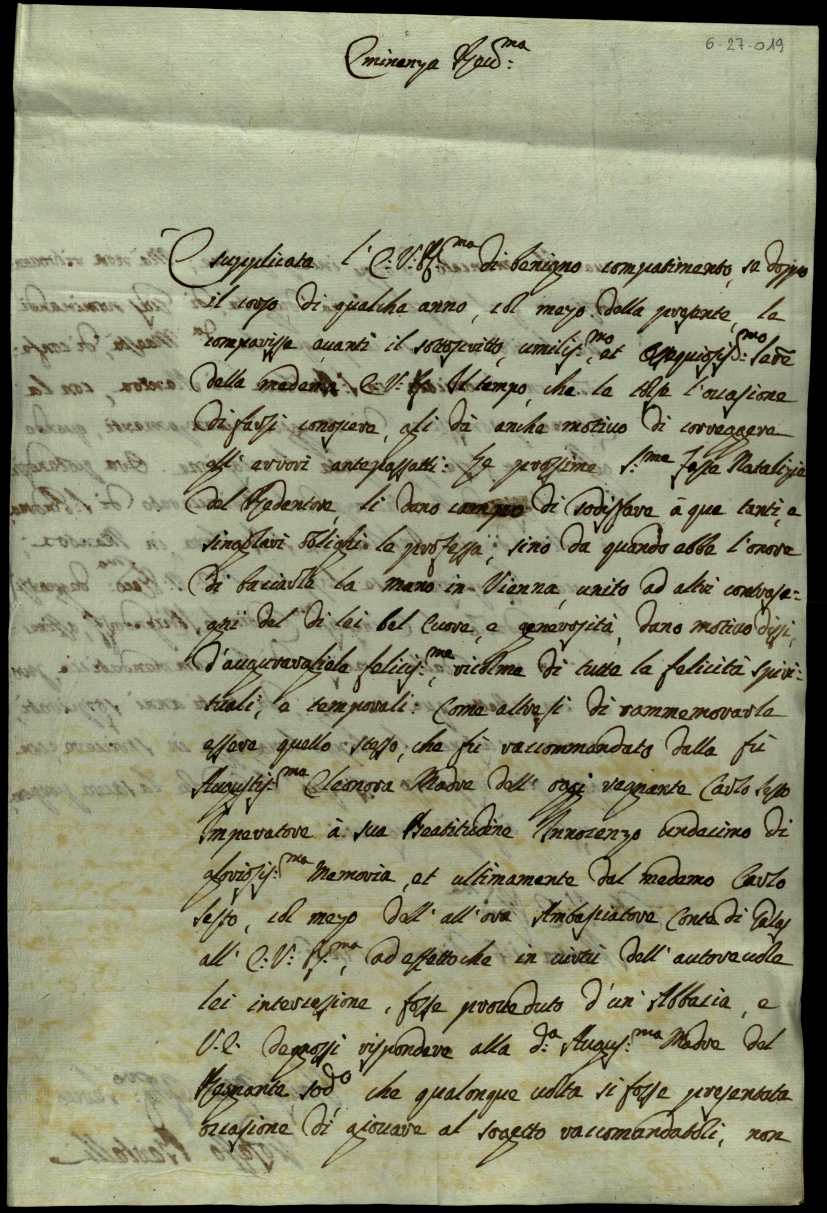 6-27-019
Eminenza Rev:ma
È supplicata l'E:V:R:ma di benigno compatimento, se doppo
il corso di qualche anno, col mezo della presente, le
comparisse avanti il sottoscritto, umilis:mo, et ossequiosis:mo Serre
della medema E:V: Il tempo, che le tolse l'ocasione
di farsi conoscere, gli dà anche motivo di correggere
gl'errori antepassatti: Le prossime S:me Feste Natalizie
del Redentore, li dano campo di sodisfare à que tanti, e
singolari oblighi le professa, sino da quando ebbe l'onore
di baciarle la mano in Vienna, unito ad altri contrase=
gni del di lei bel Cuore, e generosità, dano motivo dissi,
d'augurargliele felicis:me, ricolme di tutte le felicità spiri=
tuali, e temporali: Come altresi di rammemorarle
essere quello stesso, che fù raccommandato dalla fù
Augustis:ma Eleonora Madre dell'oggi regnante Carlo Sesto
Imperatore à sua Beatitudine Innocenzo undecimo di
gloriosis:ma Memoria, et ultimamente dal medemo Carlo
Sesto, col mezo dell'all'ora Ambasciatore Conte di Galas
all'E:V:R:ma, ad effetto che in virtù dell'autorevole
lei intercessione, fosse proveduto d'un'Abbacia, e
V.E. degnossi rispondere alla d:a Augus:ma Madre del
Regnante sod:o che qualonque volta si fosse presentata
occasione di giovare al sogetto raccomandatoli, non